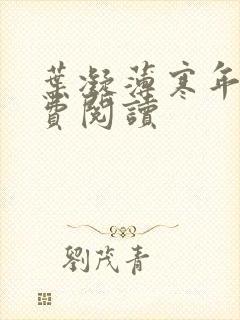 葉凝薄寒年
費閱讀
劉茂青